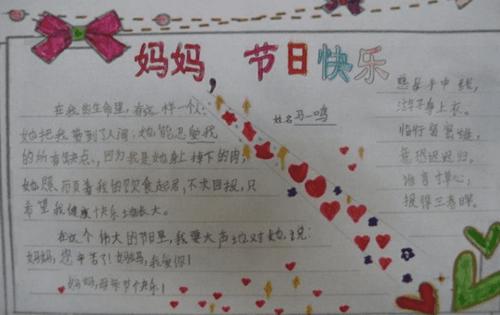 妈妈，节日快乐
姓名马一鸣
在我的生命里，有这样一个人：
她把我带到人间，她能忍受我
的所有缺点，因为我是她身上掉下的肉；
她照顾着我的饮食起居，不求回报，只
希望我健康快乐地长大。
在这个伟大的节日里，我要大声地对她说：
妈妈，您辛苦了！妈妈，我爱你！
妈妈，母亲节快乐！
慈母手中线，
游子身上衣。
临行密密缝，
意恐迟迟归。
谁言寸草心，
报得三春晖。